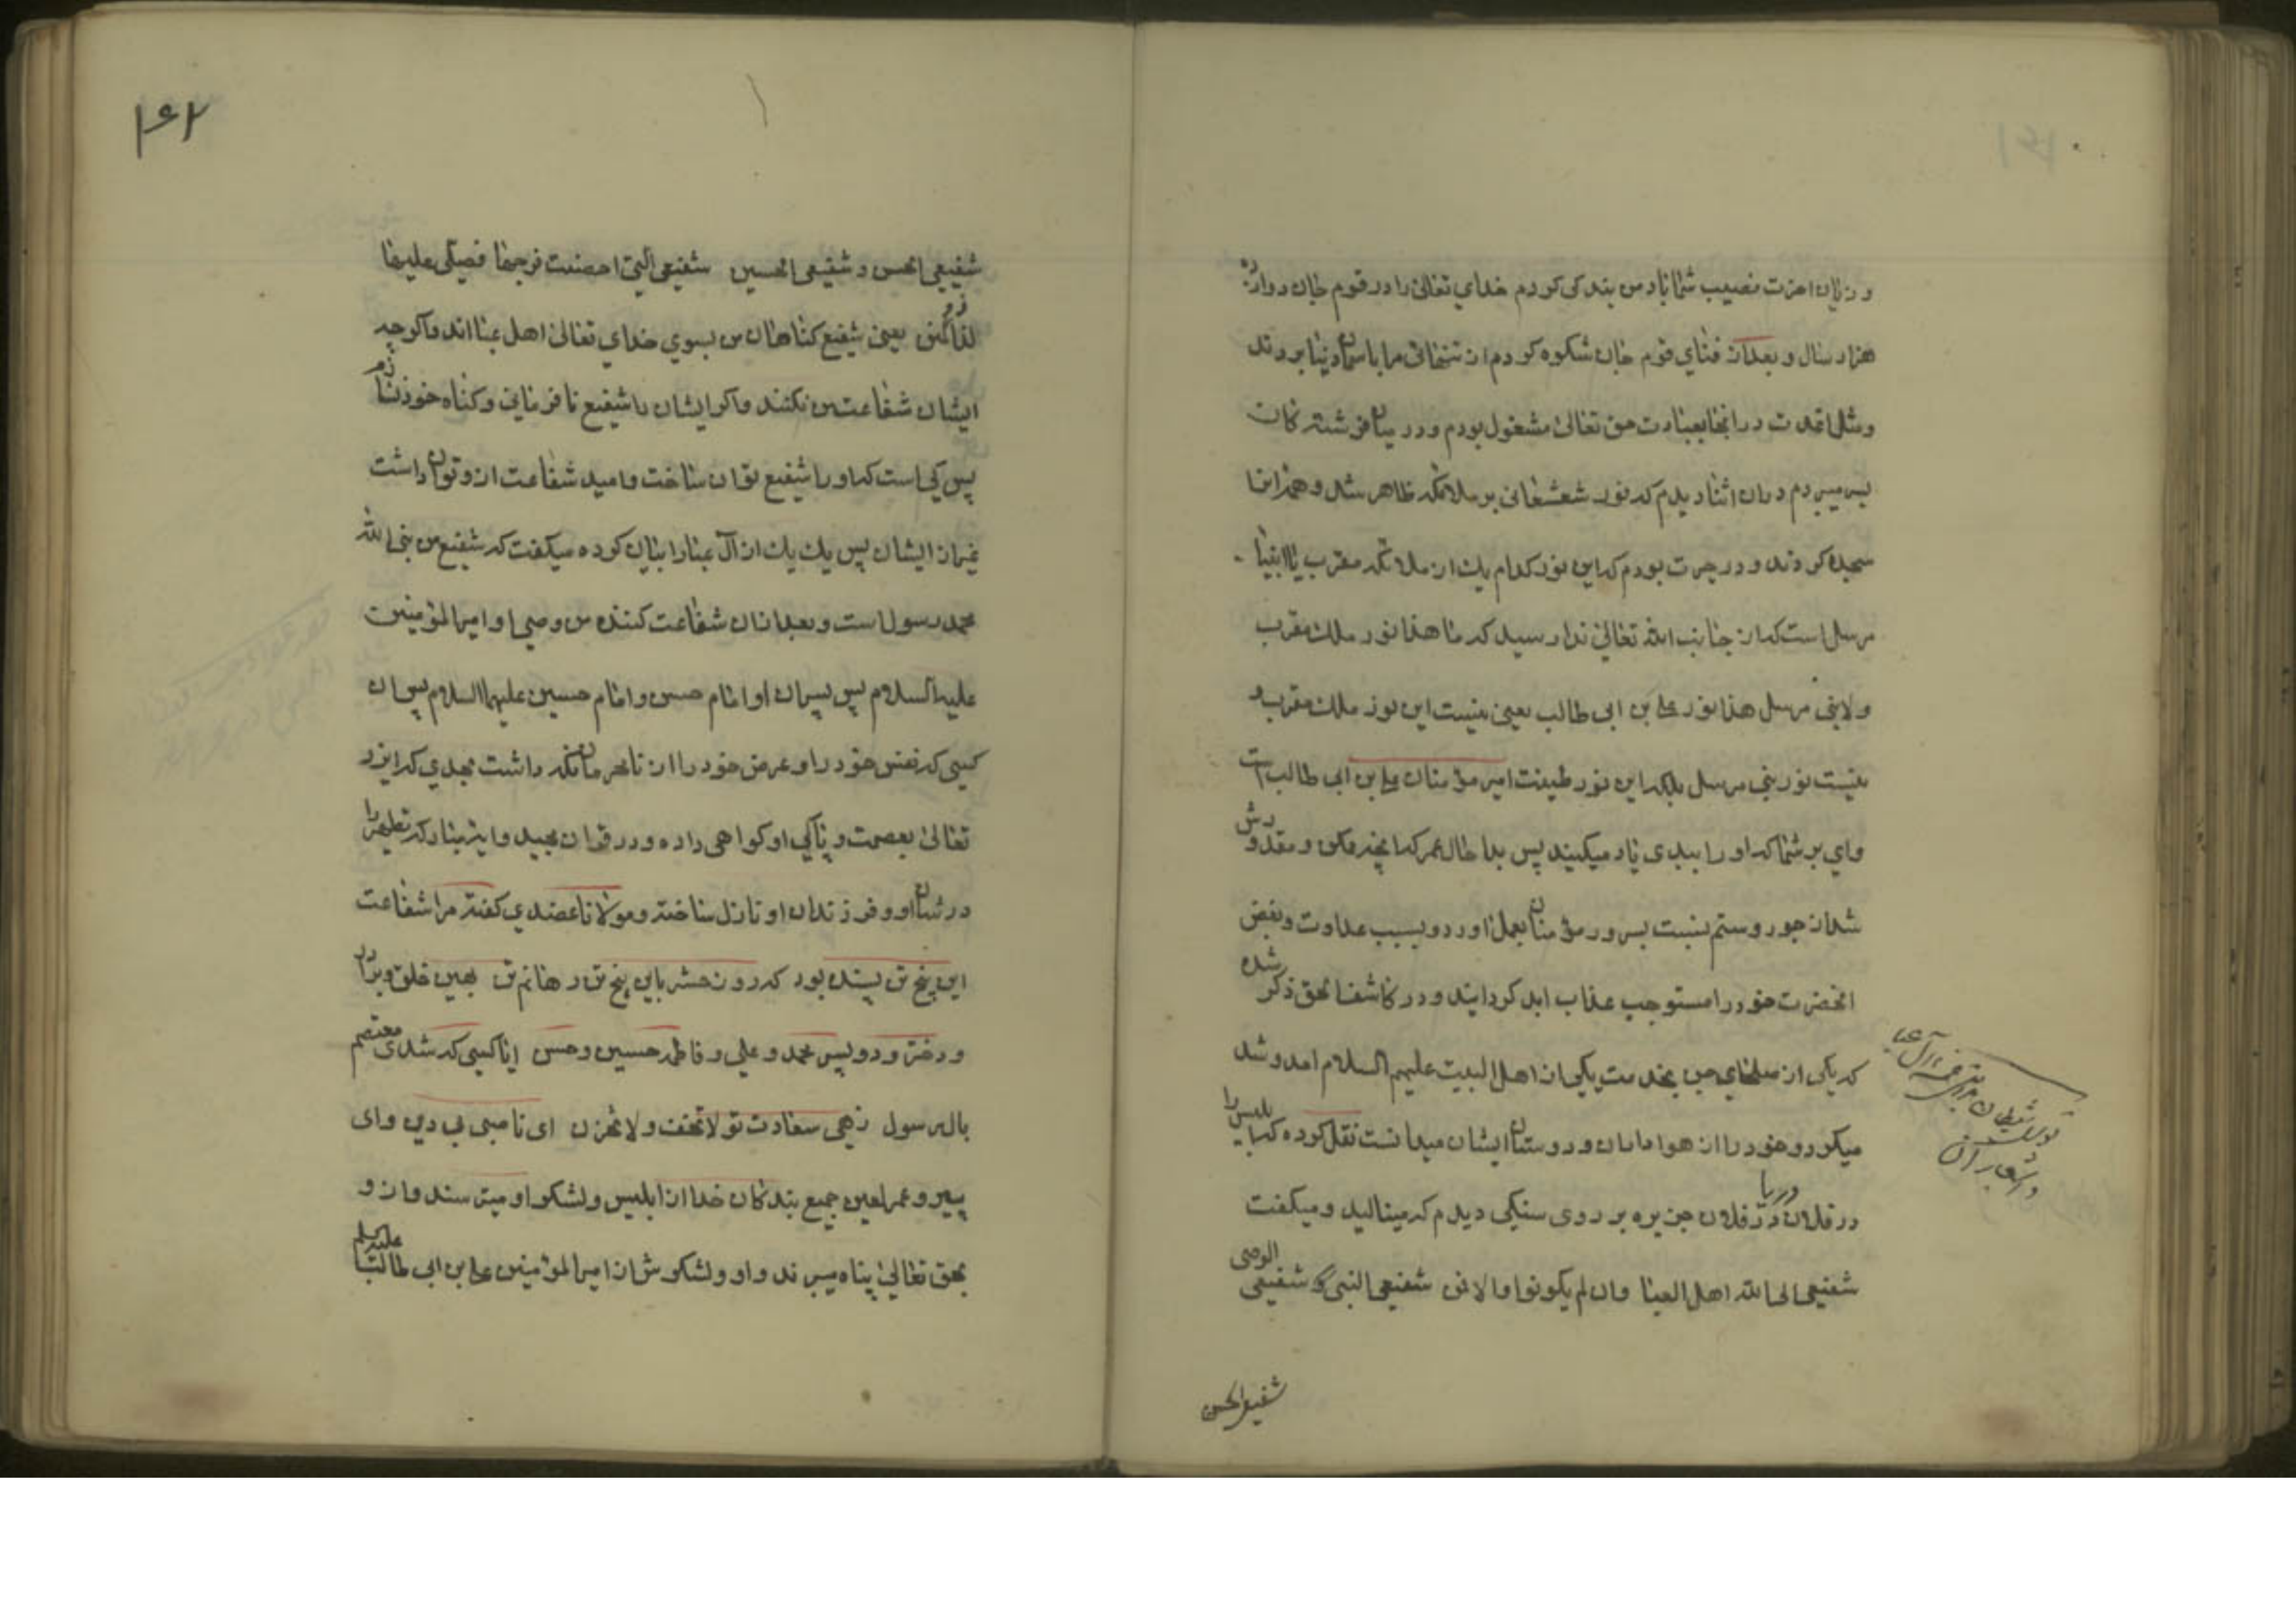 و زیان اخرت نصیب شما باد من بندکی کردم خدای تعالی را در قوم جان دوازده
هزار سال و بعد از فنای قوم جان شکوه کردم از تنهائی مرا باسمان دنیا بردند
و مثل اقدت در انجا بعبادت حق تعالی مشغول بودم و در میان فرشته کان
بسر میبردم در ان اثنا دیدم که نور شعشعانی بر ملائکه ظاهر شد و همه انها
سجده کردند و در حیرت بودم که این نور کدام یك از ملائکه مقرب یا انبیا
مرسل است که از جانب الله تعالی ندا رسید که ما هذا نور ملك مقرب
ولا نبی مرسل هذا نور علی بن ابی طالب یعنی نیست این نور ملك مقرب و
نیست نور نبی مرسل بلکه این نور طینت امیر مؤمنان علی بن ابی طالب است
وای بر شما که او را ببدی یاد میکنید پس بدا حال عمر که انچه ممکن و مقدورش
شد از جور و ستم بنسبت بسرور مؤمنان بعمل اورد و بسبب عداوت و بغض
انحضرت خود را مستوجب عذاب ابد کردانید و در کاشف الحق ذکر شده
که یکی از صلحای جن بخدمت یکی از اهل البیت علیهم السلام امد و شد
میکرد و خود را از هواداران و دوستان ایشان میدانست نقل کرده که ابلیس را
در فلان دریا در فلان جزیره بر روی سنکی دیدم که مینالید و میکفت
شفیعی الی الله اهل العبا وان لم یکونوا فالا فمن شفیعی النبی و شفیعی الوصی
شفیعی الحسن
شفیعی الحسن و شفیعی الحسین شفیعی التی احصنت فرجها فصلی علیها
یعنی شفیع کناهان من بسوی خدای تعالی اهل عبا اند و اکر چه
ایشان شفاعت من نکنند و اکر ایشان را شفیع نافرمانی و کناه خود نسازم
پس کی است که او را شفیع توان ساخت و امید شفاعت از و توان داشت
غیر از ایشان پس یك یك از آل عبا را بیان کرده میکفت که شفیع من نبی الله
محمد رسول است و بعد از ان شفاعت کننده من وصی او امیر المؤمنین
علیه السلام پس پسران او امام حسن و امام حسین علیهما السلام پس ان
کسی که نفس خود را و عرض خود را از نامحرمان نکه داشت بحدی که ایزد
تعالی بعصمت و پاکی او کواهی داده و در قران مجید و ایه بینا رکه تطهیر را
در شان او و فرزندان او نازل ساخته و مولانا عضدی کفته مرا شفاعت
این پنج تن بسنده بود که روز حشر باین پنج تن رهانم تن بهین خلق و برادر
و دختر و دو پسر محمد و علی و فاطمه حسین و حسن ایا کسی که شدی معتصم
بال رسول زهی سعادت تو لا تخف ولا تحزن ای ناصبی بی دین و ای
پیرو عمر لعین جمیع بندکان خدا از ابلیس و لشکر او میترسند و از و
بحق تعالی پناه میبرند و او و لشکرش از امیر المؤمنین علی بن ابی طالب علیه السلم
۱۶۲